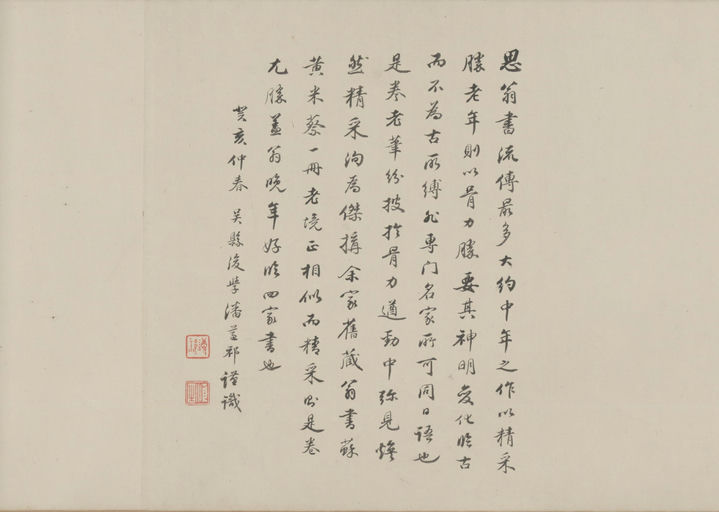 思翁書流傳最多大約中年之作以精采
勝老年則以骨力勝要其神明變化臨古
而不為古所縛非專门名家所可同日語也
是卷老筆紛披於骨力遒勁中彌見煥
然精采洵為傑搆余家舊藏翁書蘇
黃米蔡一冊老境正相似而精采則是卷
尤勝蓋翁晚年好臨四家書也
癸亥仲春 吳縣後學潘 祁謹識